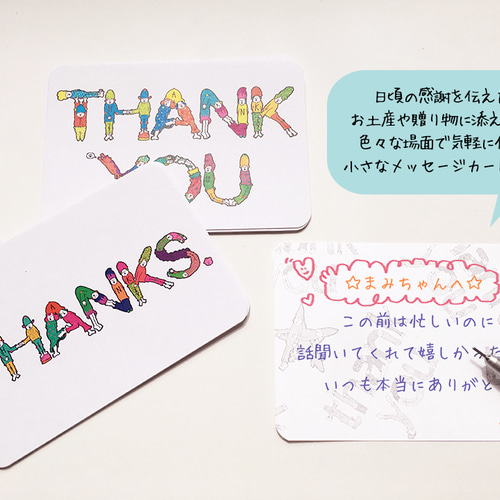 THANK
YOU
THANKS.
日頃の感謝を伝え
お土産や贈り物に添え
色々な場面で気軽に
小さなメッセージカー
☆まみちゃんへ☆
この前は忙しいのに
話聞いてくれて嬉しかった
いつも本当にありがと